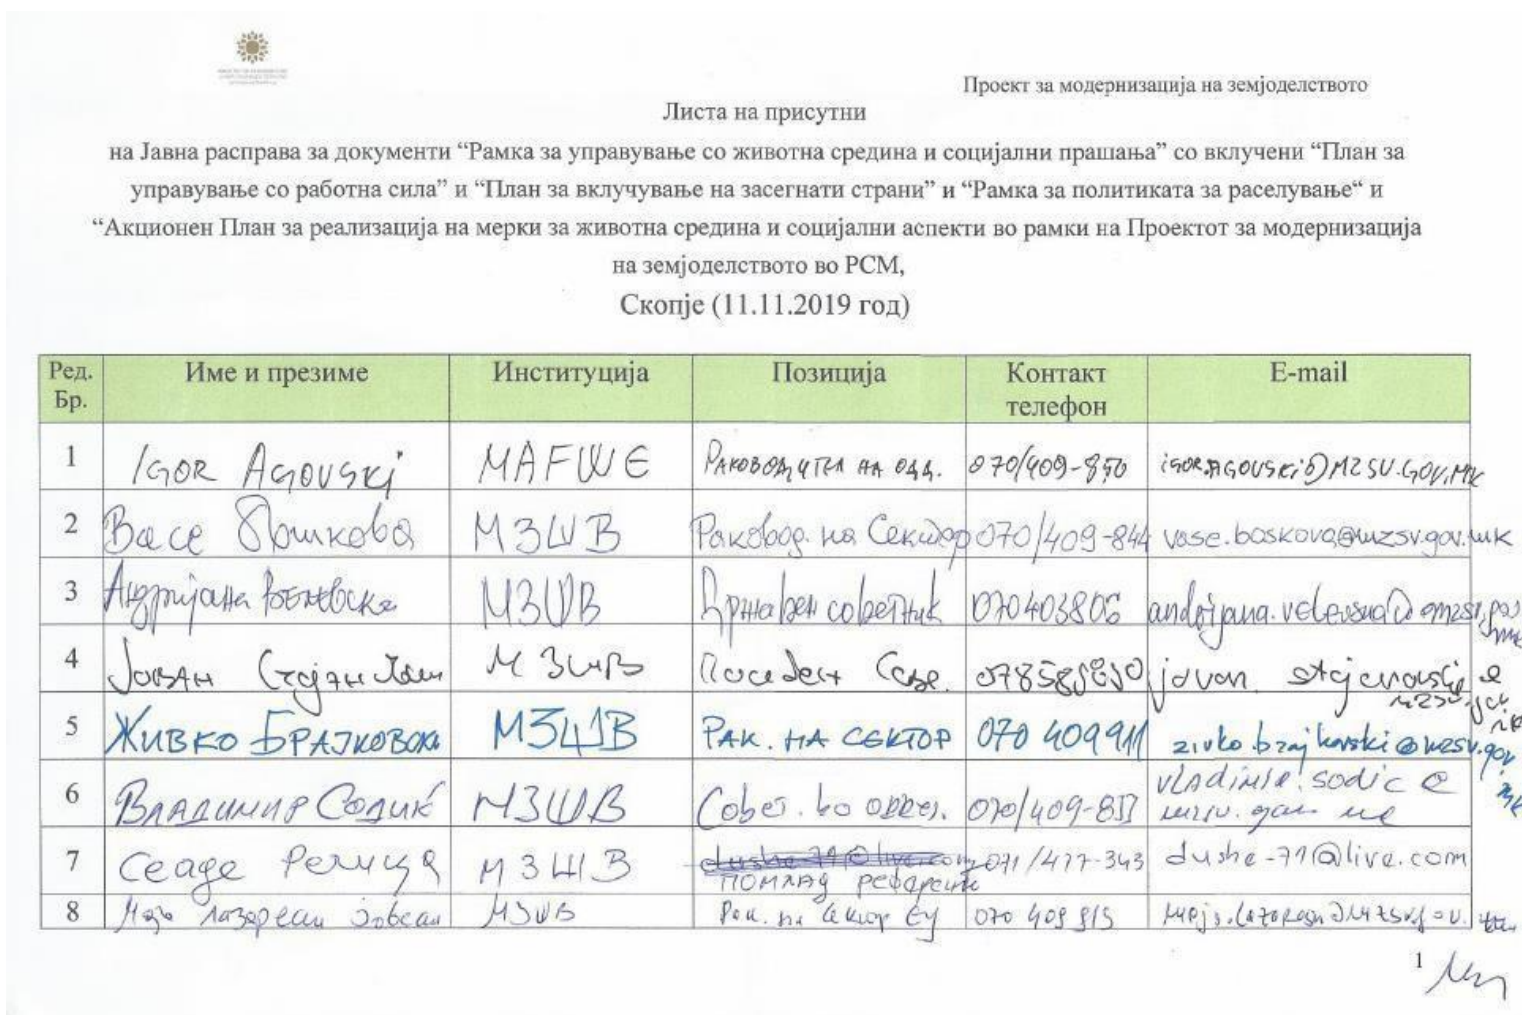 Проект за модернизација на земјоделството
Листа на присутни
на Јавна расправа за документи “Рамка за управување со животна средина и социјални прашања” со вклучени “План за
управување со работна сила” и “План за вклучување на засегнати страни” и “Рамка за политиката за раселување“ и
“Акционен План за реализација на мерки за животна средина и социјални аспекти во рамки на Проектот за модернизација
на земјоделството во РСМ,
Скопје (11.11.2019 год)
Ред. Бр. Име и презиме Институција Позиција Контакт телефон E-mail
1 IGOR AGOVSKI MAFWE РАКОВОДИТЕЛ НА ОДД. 070/409-850 IGOR.AGOVSKI@MZSV.GOV.MK
2 Васе Бошкова МЗШВ Раковод. на Сектор 070/409-844 vase.boskova@mzsv.gov.mk
3 Андријана МЗШВ Државен советник 070403806
4 Јован МЗШВ jovan
5 ЖИВКО БРАЈКОВСКИ МЗШВ РАК. НА СЕКТОР 070 409911 zivko.brajkovski@mzsv.gov.mk
6 ВЛАДИМИР СОДИЌ МЗШВ Совет. во vladimir.sodic@
7 Сеаде МЗШВ помлад референт 071/477-343 dushe-71@live.com
8 МЗШВ Рак. на Сектор 070 409
1